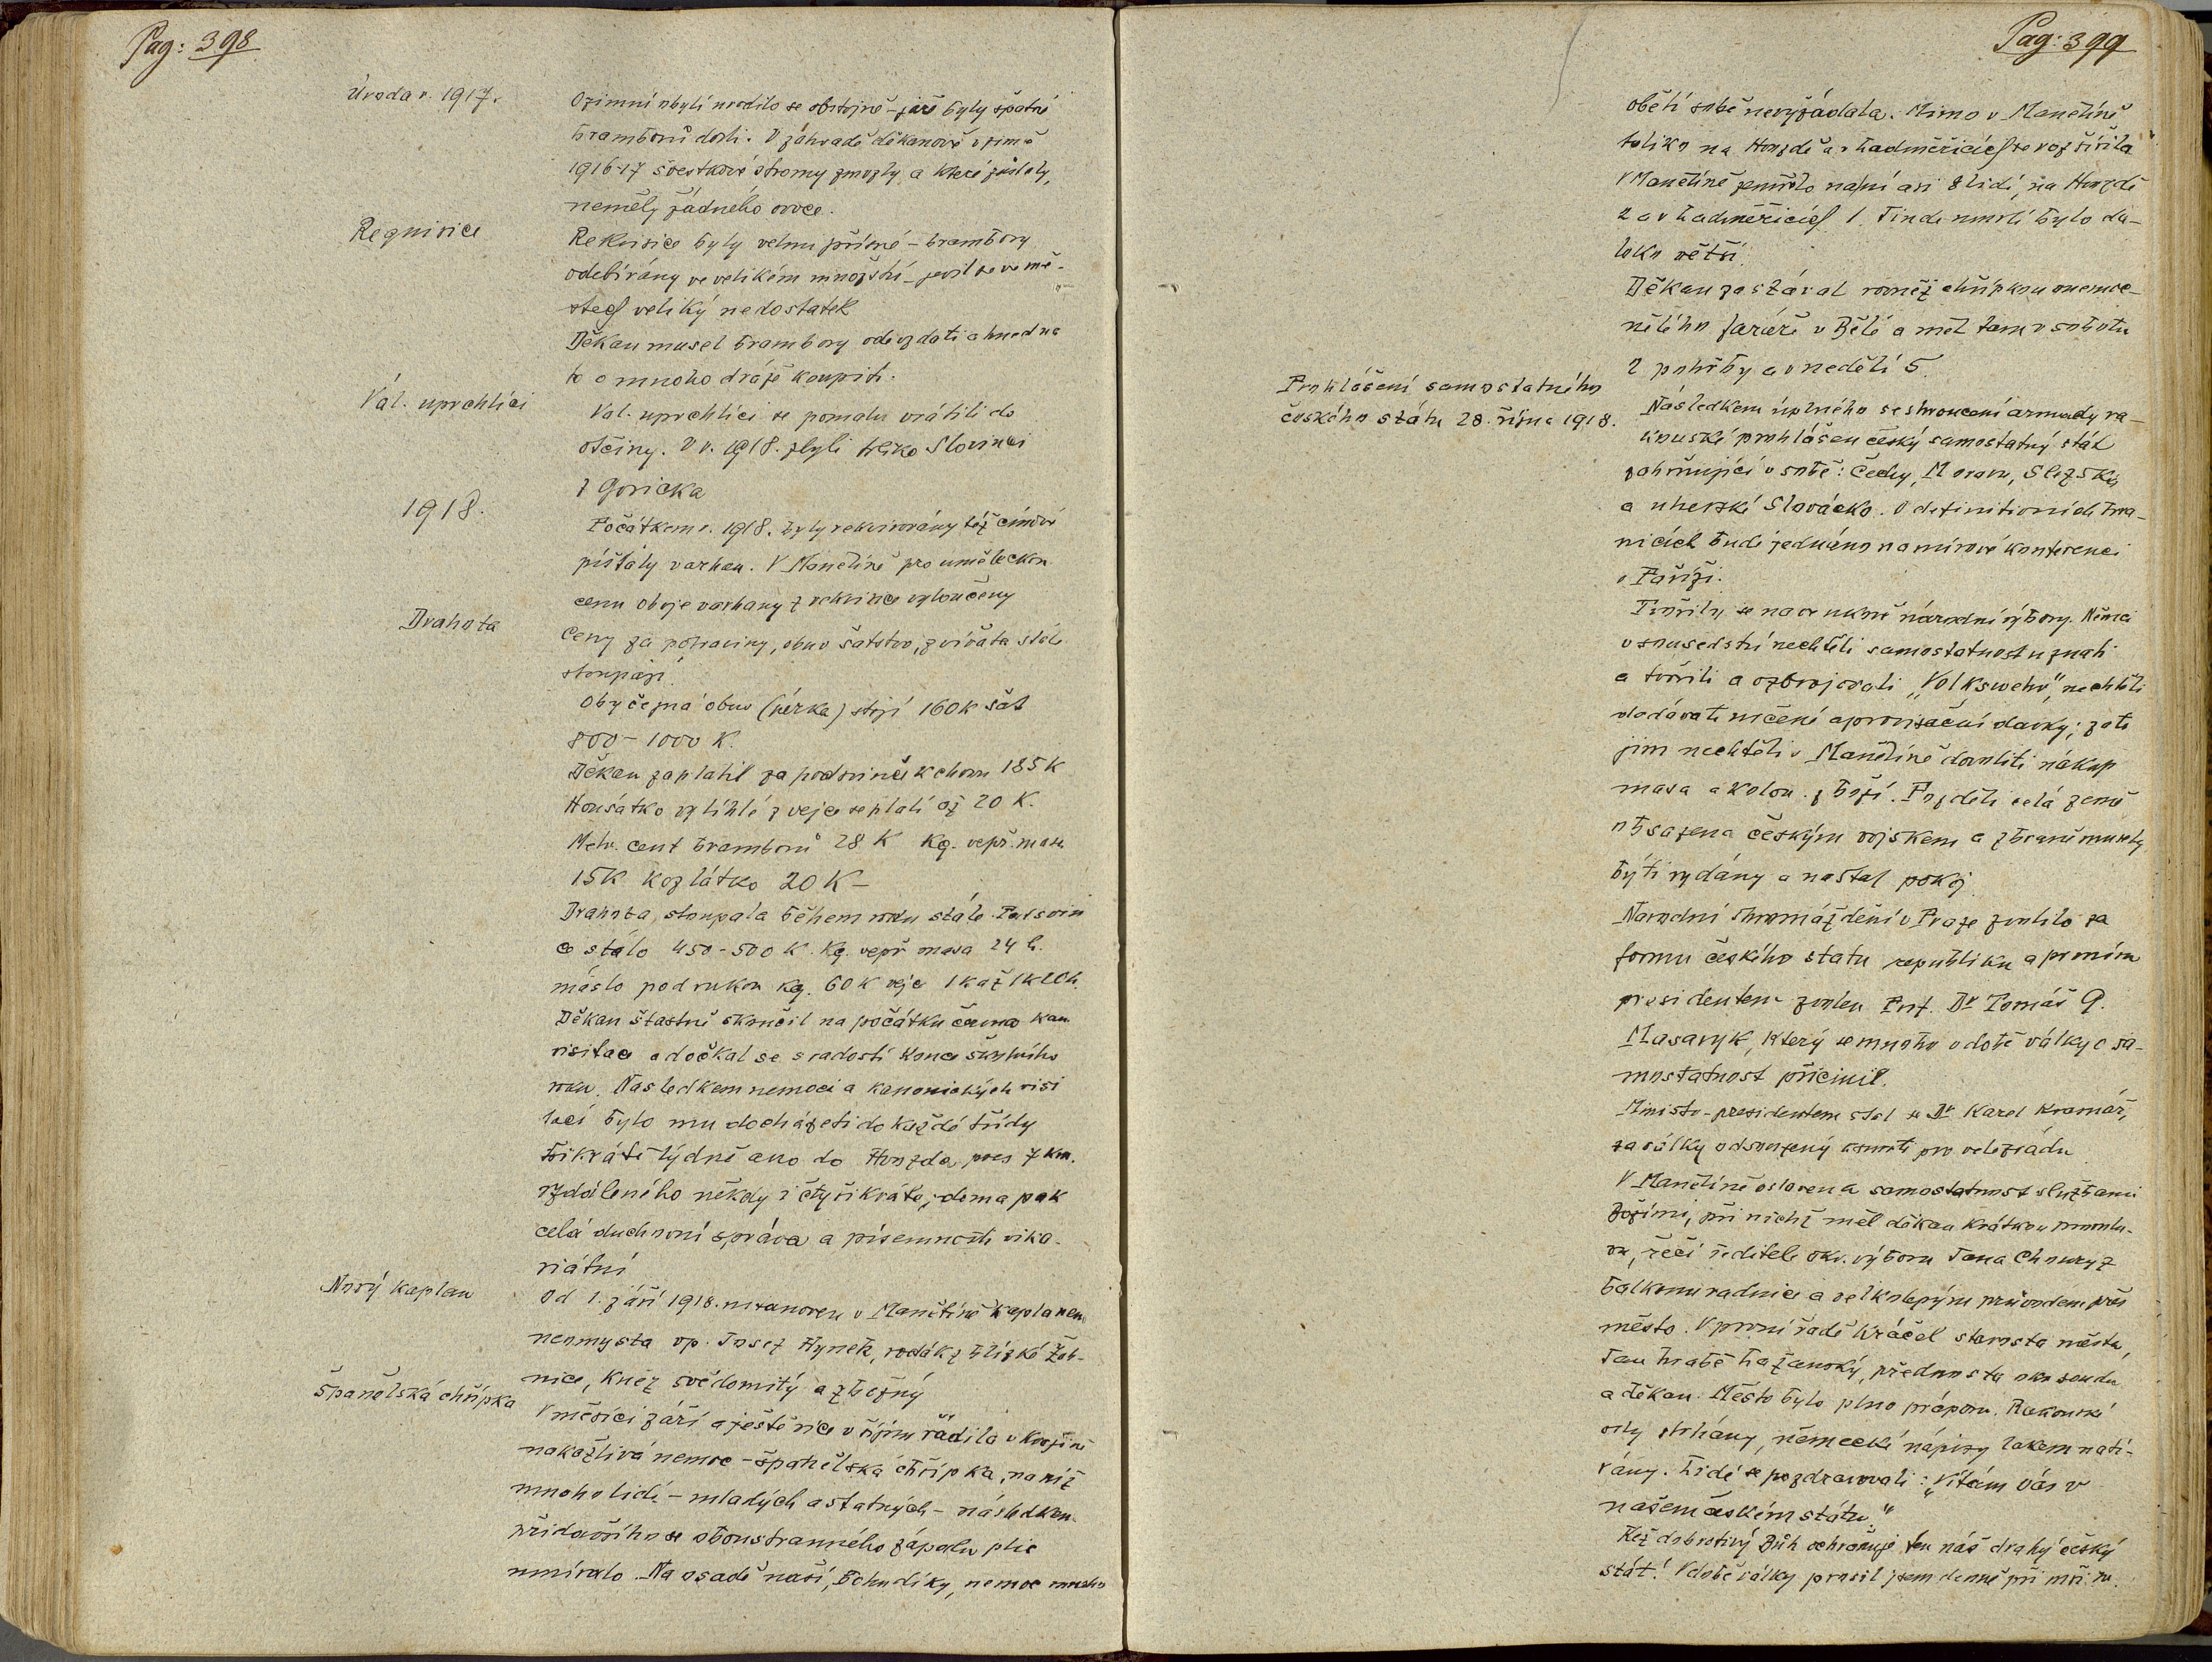 Pag: 398
Úroda r. 1917.
Ozimní obylí urodilo se obstojně – jaře byly špatné
bramborů dosti. V zahradě děkanově v zimě
1916-17 švestkové stromy zmrzly a které zůstaly,
neměly žádného ovoce.
Requisice
Rekvisice byly velmi přísné – brambory
odebírány ve velikém množství – jevil se ve mě-
stech veliký nedostatek
Děkan musel brambory odevzdati a hned na
to o mnoho dráže koupiti.
Vál. uprchlíci
Val. uprchlíci se pomalu vrátili do
otčiny. V r. 1918. zbyli toliko Slovinci
z Goricka
1918.
Počátkem r. 1918. byly rekvirovány též cínové
píšťaly varhan. V Manětíně pro uměleckou
cenu oboje varhany z rekvisice vyloučeny
Drahota
Ceny za potraviny, obuv šatstvo, zvířata stále
stoupají.
Obyčejná obuv (pérka) stojí 160 K šat
800 – 1000 K.
Děkan zaplatil za podsvinče k chovu 185 K
Housátko vylíhlé z vejce se platí až 20 K.
Metr. cent bramborů 28 K Kg. vepř. masa
15 K kozlátko 20 K –
Drahota stoupala během roku stále. Podsvin
če stálo 450-500 K. Kg. vepř masa 24 k.
máslo pod rukou kg. 60 K vejce 1 K až 1 K 20 h.
Děkan šťastně skončil na počátku června kan.
visitace a dočkal se s radostí konce školního
roku. Následkem nemoci a kanonických visi
tací bylo mu docházeti do každé třídy
třikráte týdně ano do Hvozda, přes 7 km.
vzdáleného někdy i čtyřikráte, doma pak
celá duchovní správa a písemnosti vika-
riátní
Nový kaplan
Od 1. září 1918. ustanoven v Manětíně kaplanem
neomysta vp. Josef Hynek, rodák z blízké Žeb-
nice, kněz svědomitý a zbožný
Španělská chřipka
V měsíci září a ještě více v říjnu řádila v krajině
nakažlivá nemoc – španělská chřipka, na niž
mnoho lidí – mladých a statných – následkem
přidavšího se oboustranného zápalu plic
umíralo. Na osadě naší, Bohu díky, nemoc mnoho
Pag: 399
obětí sobě nevyžádala. Mimo v Manětíně
toliko na Hvozdě a v Ladměřicích se rozšířila
V Manětíně zemřelo na ni asi 8 lidí, na Hvozdě
2 a v Ladměřicích 1. Jinde umrlí bylo da-
leko větší.
Děkan zastával rovněž chřipkou onemoc-
nělého faráře v Bělé a měl tam v sobotu
2 pohřby a v neděli 5.
Prohlášení samostatného
českého státu 28. října 1918.
Následkem úplného se zhroucení armády ra-
kouské prohlášen český samostatný stát
zahrnující v sobě: Čechy, Moravu, Slezsko
a uherské Slovácko. O definitivních hra-
nicích bude jednáno na mírové konferenci
v Paříži.
Tvořily se na venkově národní výbory. Němci
v sousedství nechtěli samostatnost uznati
a tvořili a ozbrojovali „Volkswehr“, nechtěli
dodávati určené aprovisační dávky; zato
jim nechtěli v Manětíně dovoliti nákup
masa a kolon. zboží. Později celá země
obsazena českým vojskem a zbraně musely
býti vydány a nastal pokoj.
Národní shromáždění v Praze zvolilo za
formu českého státu republiku a prvním
presidentem zvolen Prof. Dr Tomáš G.
Masaryk, který se mnoho v době války o sa-
mostatnost přičinil.
Ministr-presidentem stal se Dr Karel Kramář,
za války odsouzený k smrti pro velezrádu
V Manětíně oslavena samostatnost službami
Božími, při nichž měl děkan krátkou promlu-
vu, řečí ředitele okr. výboru Jana Choury z
balkonu radnice a velkolepým průvodem přes
město. V první řadě kráčel starosta města,
Jan hrabě Lažanský, přednosta okr. soudu
a děkan. Město bylo plno praporů. Rakouské
orly strhány, německé nápisy lakem natí-
rány. Lidé se pozdravovali: „Vítám Vás v
našem českém státu.“
Kéž dobrotivý Bůh ochraňuje ten náš drahý český
stát! V době války prosil jsem denně při mši sv.